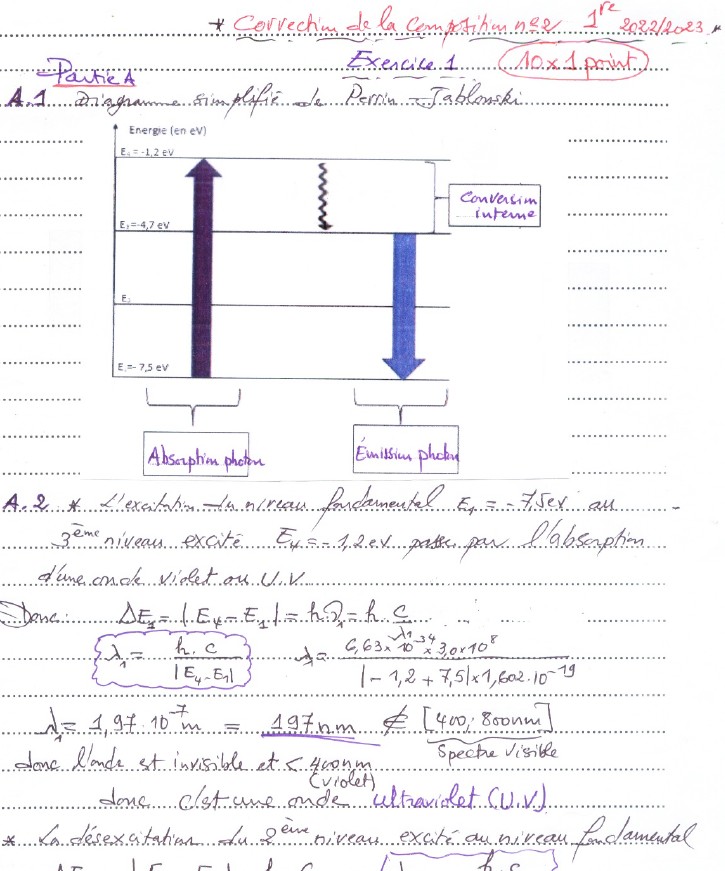 * Correction de la Composition n°2 1re 2022/2023 *
Exercice 1 (10 x 1 point)
Partie A
A.1 Diagramme simplifié de Perrin - Jablonski
Energie (en eV)
E₄ = -1,2 eV
Conversion
interne
E₃ = -4,7 eV
E₂
E₁ = - 7,5 eV
Absorption photon
Émission photon
A.2 * L'excitation du niveau fondamental E₁ = - 7,5 eV au
3ème niveau excité E₄ = - 1,2 eV passe par l'absorption
d'une onde violet ou U.V
Donc: ΔE₁ = | E₄ - E₁ | = h.ν₁ = h. c/λ₁
λ₁ = h.c / |E₄ - E₁| λ₁ = 6,63 x 10⁻³⁴ x 3,0 x 10⁸ / |- 1,2 + 7,5| x 1,602.10⁻¹⁹
λ₁ = 1,97.10⁻⁷ m = 197 nm ∉ [400; 800nm]
Spectre visible
donc l'onde est invisible et < 400nm
(violet)
donc c'est une onde ultraviolet (U.V)
* La désexcitation du 2ème niveau excité au niveau fondamental